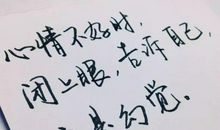 心情不好时,
闭上眼,告诉自己,
幻觉.